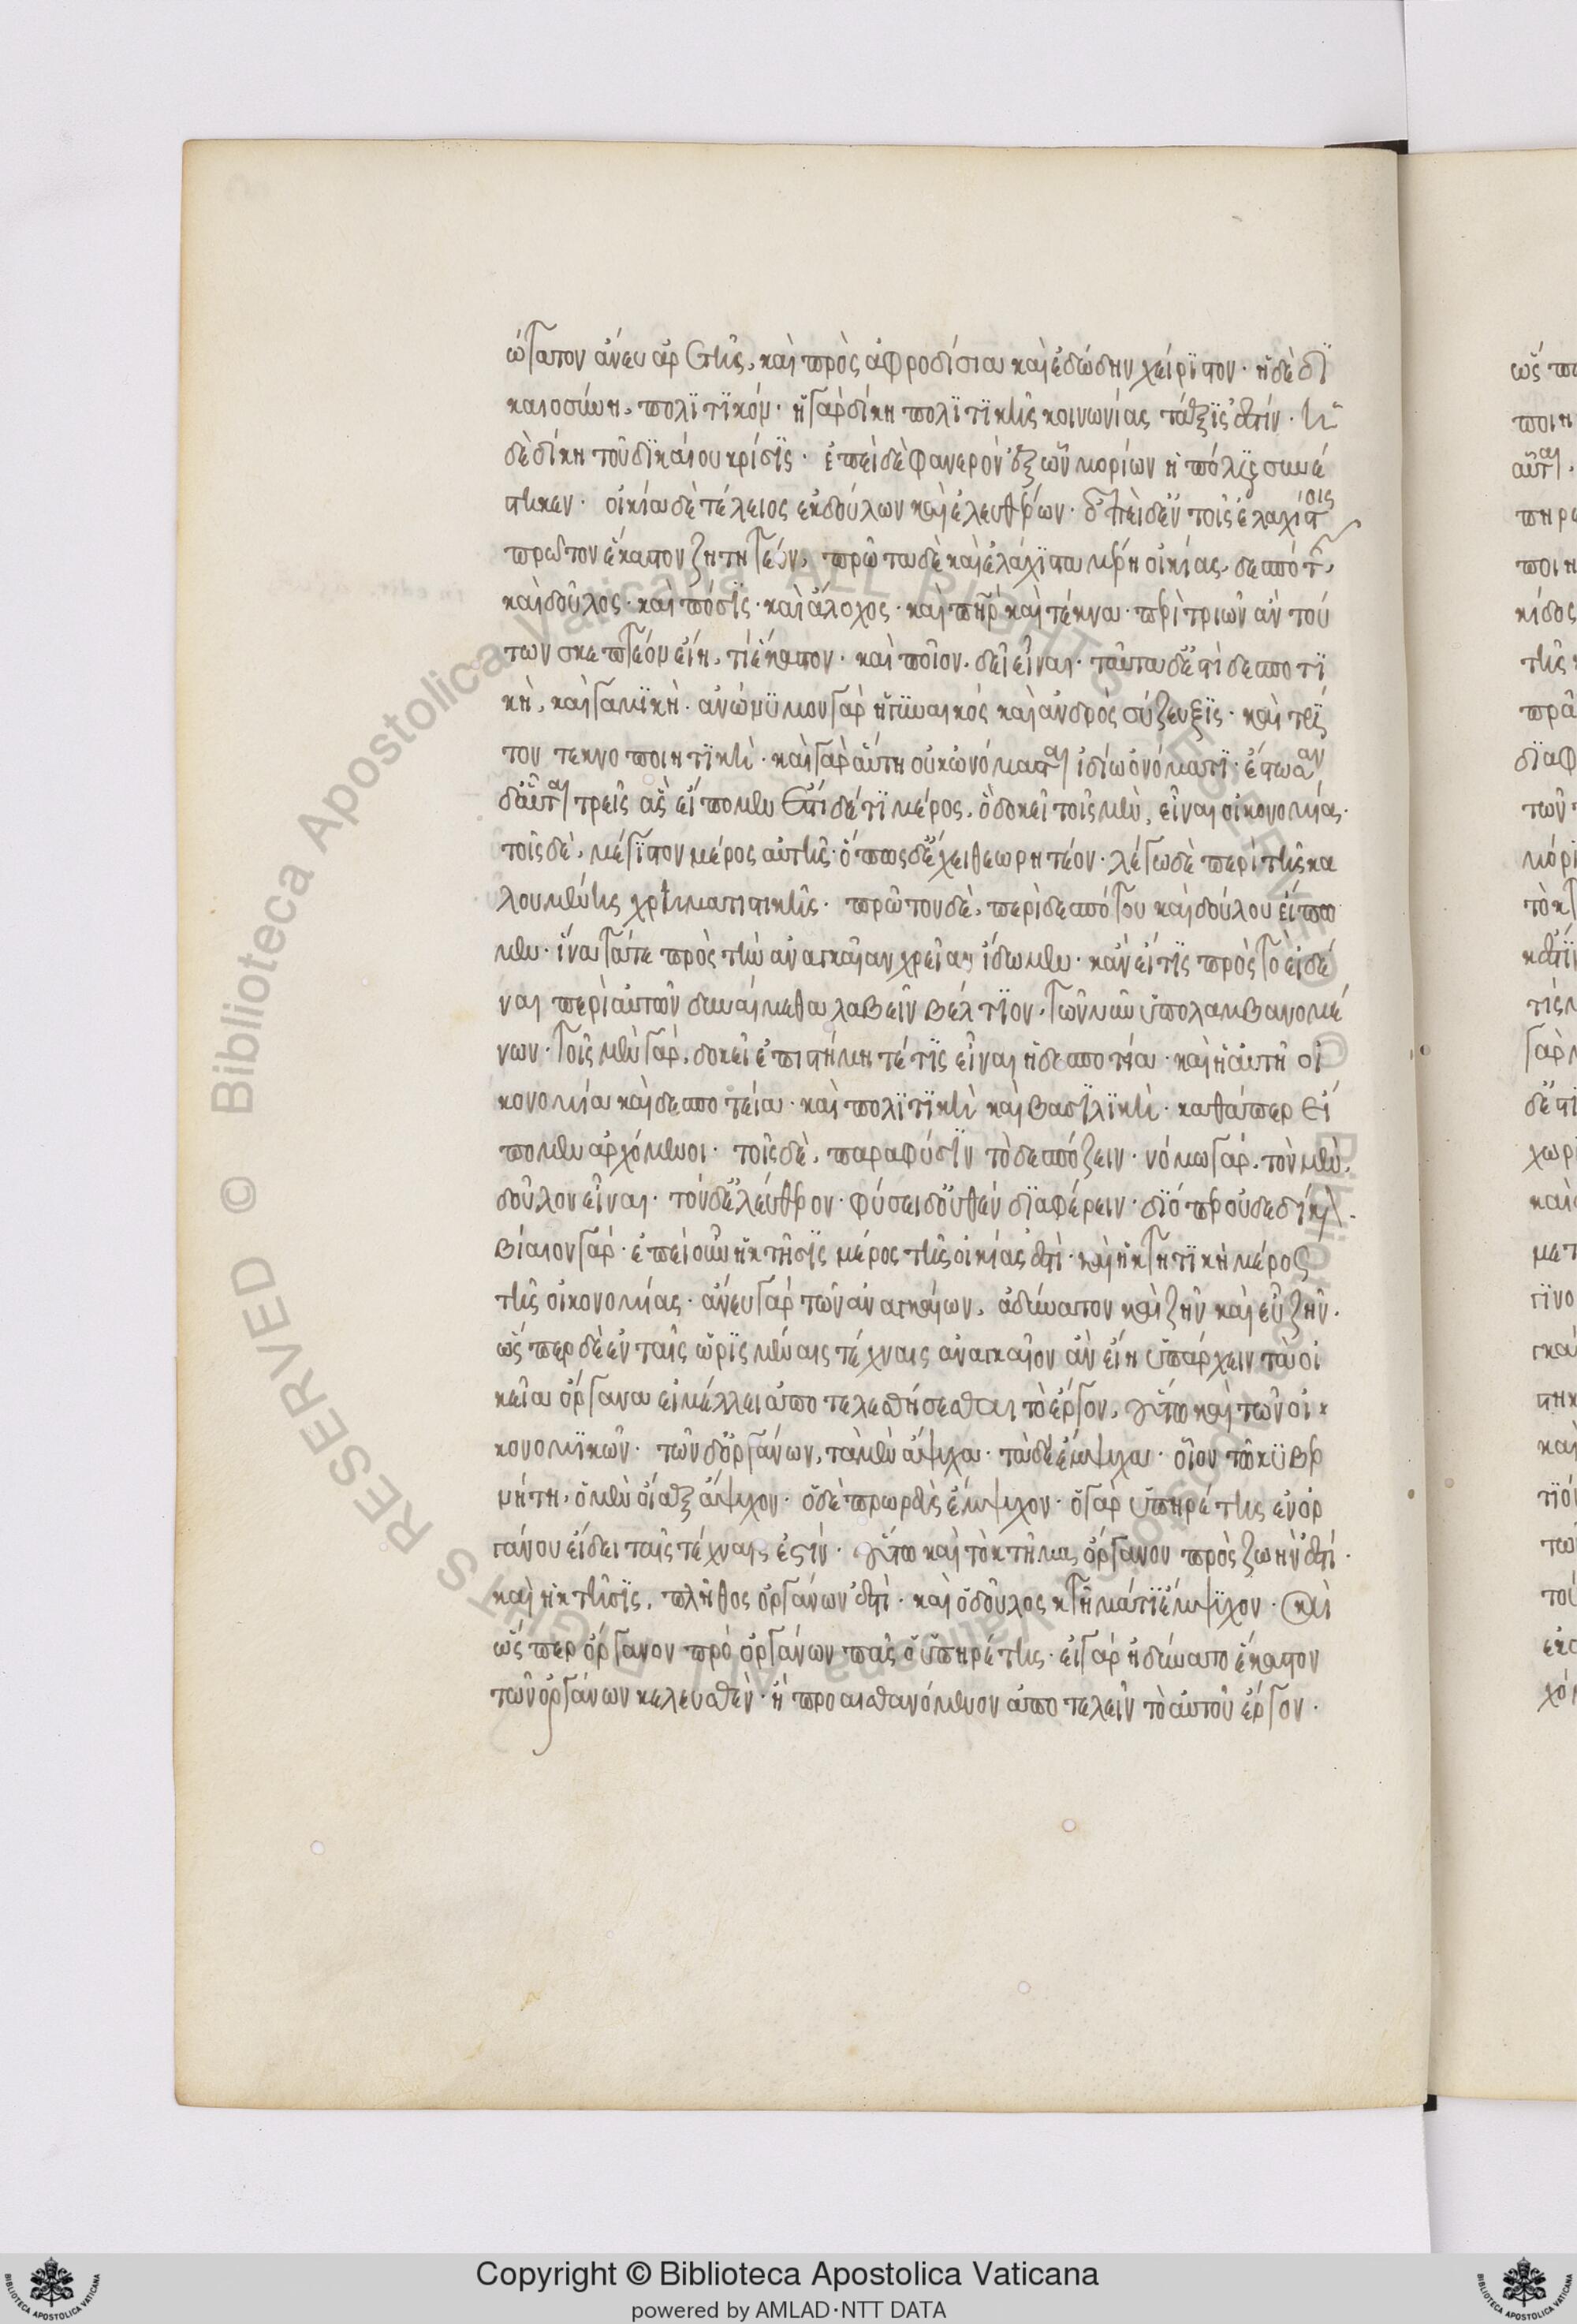 ώτατον άνευ αρετῆς, καὶ πρὸς ἀφροδίσια καὶ ἐδώδην χείριστον· ἡ δὲ δϊ
καιοσύνη, πολϊτϊκόν· ἡ γὰρ δίκη πολϊτϊκῆς κοινωνίας τάξϊς ἐστίν· ἡ
δὲ δίκη τοῦ δϊκαίου κρίσϊς· ἐπεὶ δὲ φανερὸν ἐξ ὧν μορίων ἡ πόλϊς συνέ
στηκεν· οἰκία δὲ τέλειος ἐκ δούλων καὶ ἐλευθέρων· δ' ἐν τοῖς ἐλαχίστοις
πρῶτον ἕκαστον ζητητέον, πρῶτα δὲ καὶ ἐλάχϊστα μέρη οἰκίας, δεσπότης,
καὶ δοῦλος· καὶ πόσϊς· καὶ ἄλοχος· καὶ πηρ καὶ τέκνα· περὶ τριῶν ἂν τού
των σκεπτέον εἴη, τί ἕκαστον· καὶ ποῖον, δεῖ εἶναι· ταῦτα δ' ἐστὶ δεσποτϊ
κὴ, καὶ γαμϊκὴ· ἀνώνϋμον γὰρ ἡ γϋναικός καὶ ἀνδρός σύζευξϊς· καὶ τρί
τον τεκνοποιητϊκὴ· καὶ γὰρ αὕτη οὐκ ὠνόμασται ἰδίῳ ὀνόματϊ· ἔστωσαν
δ' αὗται τρεῖς ἃς εἴπομεν ἔστι δέ τϊ μέρος, ὃ δοκεῖ τοῖς μὲν, εἶναι οἰκονομίας·
τοῖς δὲ, μέγϊστον μέρος αὐτῆς· ὅπως δ' ἔχει θεωρητέον· λέγω δὲ περὶ τῆς κα
λουμένης χρηματιστικῆς· πρῶτον δὲ, περὶ δεσπότου καὶ δούλου εἴπω
μεν· ἵνα τάτε πρὸς τὴν ἀναγκαίαν χρείαν ἴδωμεν· κἂν εἴ τϊς πρὸς τὸ εἰδέ
ναι περὶ αὐτῶν δυναίμεθα λαβεῖν βέλτϊον, τῶν νῦν ὑπολαμβανομέ
νων· τοῖς μὲν γὰρ, δοκεῖ ἐπιστήμη τέ τϊς εἶναι ἡ δεσποτεία· καὶ ἡ αὐτὴ οἰ
κονομία καὶ δεσποτεία· καὶ πολϊτϊκὴ καὶ βασϊλϊκὴ· καθάπερ εἴ
πομεν ἀρχόμενοι· τοῖς δὲ, παρα φύσϊν τὸ δεσπόζειν· νόμω γὰρ, τὸν μὲν,
δοῦλον εἶναι· τὸν δ' ἐλεύθερον· φύσει δ' οὐθὲν δϊαφέρειν· δϊόπερ οὐδε δίκαιον·
βίαιον γάρ· ἐπεὶ οὖν ἡ κτῆσϊς μέρος τῆς οἰκίας ἐστὶ· καὶ ἡ κτητϊκὴ μέρος
τῆς οἰκονομίας· ἄνευ γὰρ τῶν ἀναγκαίων, ἀδύνατον καὶ ζῆν καὶ εὖ ζῆν.
ὥσπερ δὲ ἐν ταῖς ὡρϊσμέναις τέχναις ἀναγκαῖον ἂν εἴη ὑπάρχειν τὰ οἰ
κεῖα ὄργανα εἰ μέλλει ἀποτελεσθήσεσθαι τὸ ἔργον, οὕτω καὶ τῶν οἰ
κονομϊκῶν· τῶν δ' ὀργάνων, τὰ μὲν ἄψυχα· τὰ δὲ ἔμψυχα· οἷον τῶ κϋβερ
νήτη, ὁ μὲν οἴαξ ἄψυχον· ὁ δὲ πρωρεὺς ἔμψυχον· ὁ γὰρ ὑπηρέτης ἐν ὀρ
γάνου εἴδει ταῖς τέχναις ἐστίν· οὕτω καὶ τὸ κτῆμα, ὄργανον πρὸς ζωὴν ἐστί·
καὶ ἡ κτῆσϊς, πλῆθος ὀργάνων ἐστὶ· καὶ ὁ δοῦλος κτῆμά τϊ ἔμψϋχον· καὶ
ὥσπερ ὄργανον πρὸ ὀργάνων πᾶς ὁ ὑπηρέτης· εἰ γὰρ ἠδύνατο ἕκαστον
τῶν ὀργάνων κελευσθὲν· ἢ προαισθανόμενον ἀποτελεῖν τὸ αὑτοῦ ἔργον·
Copyright © Biblioteca Apostolica Vaticana
powered by AMLAD·NTT DATA